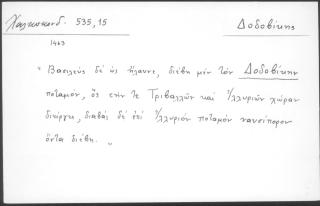 Χαλκοκονδ. 535,15 Δοδοβίκης
1463
" Βασιλεὺς δὲ ὡς ἤλαυνε, διέβη μὲν τὸν Δοδοβίκην
ποταμόν, ὃς τήν τε Τριβαλλῶν καὶ Ἰλλυριῶν χώραν
διείργει, διαβὰς δὲ ἐπὶ Ἰλλυριὸν ποταμὸν ναυσίπορον
ὄντα διέβη. "